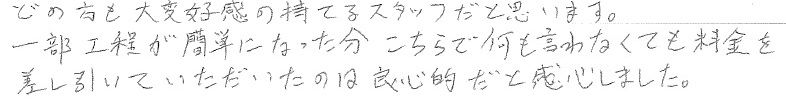 どの方も大変好感の持てるスタッフだと思います。
一部工程が簡単になった分こちらで何も言わなくても料金を
差し引いていただいたのは良心的だと感心しました。